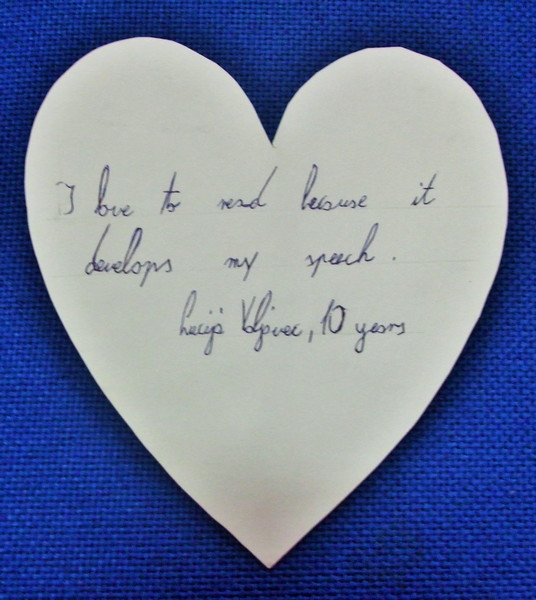 I love to read because it
develops my speech.
Lucija Valjavec, 10 years